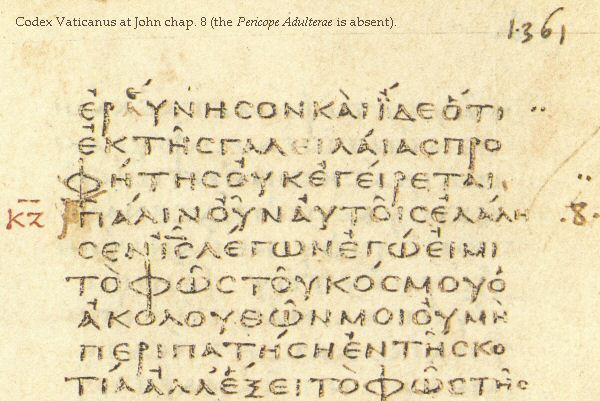 Codex Vaticanus at John chap. 8 (the Pericope Adulterae is absent).
1361
ἘΡΑΎΝΗϹΟΝΚΑῚἼΔΕὍΤΙ
ἘΚΤΗ͂ϹΓΑΛΕΙΛΆΙΑϹΠΡΟ
ΦΉΤΗϹΟὐΚἘΓΕΊΡΕΤΑΙ
ΚΖ ΠΆΛΙΝΟὖΝΑὐΤΟΙ͂ϹἘΛΆΛΗ .8.
ϹΕΝῙϹ̄ΛΈΓΩΝἘΓΏἘΙΜΙ
ΤῸΦΩ͂ϹΤΟΥ͂ΚΌϹΜΟΥὉ
ἈΚΟΛΟΥΘΩ͂ΝΜΟΙΟὐΜῊ
ΠΕΡΙΠΑΤΉϹΗἘΝΤΗ͂ϹΚΟ
ΤΊΑἈΛΛἝΞΕΙΤῸΦΩ͂ϹΤΗ͂Ϲ